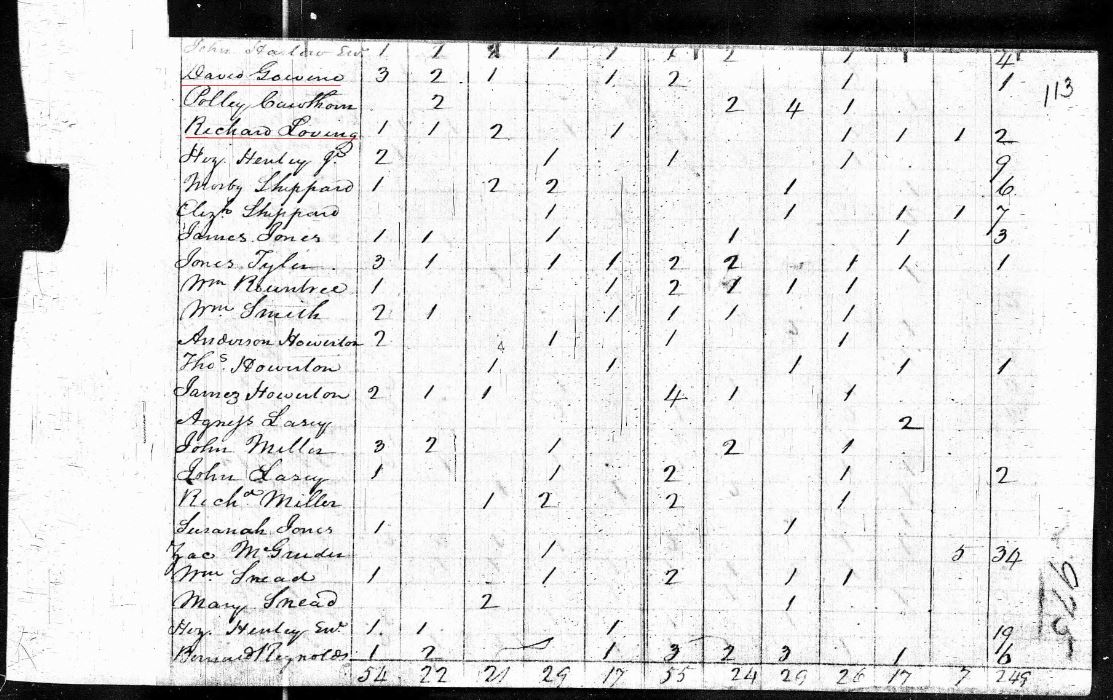 John Harlow Senr 1 2 1 1 1 1 2 1 4
David Gowine 3 2 1 1 2 1 1
113
Polley Cawthorn 2 2 4 1
Richard Loving 1 1 2 1 1 1 1 2
Hez. Henley Jr 2 1 1 1 9
Mosby Shippard 1 2 2 1 6
Elizh Shippard 1 1 1 1 7
James Jones 1 1 1 1 1 3
Jones Tyler 3 1 1 1 2 2 1 1 1
Wm Rountree 1 1 2 1 1 1
Wm Smith 2 1 1 1 1 1
Anderson Howerton 2 1 1 1
Thos Howerton 1 1 1 1 1
James Howerton 2 1 1 4 1 1
Agness Lasey 2
John Miller 3 2 1 2 1
John Lasey 1 1 2 1 2
Richd Miller 1 2 2 1
Susanah Jones 1 1
Zac McGruder 1 5 34
Wm Snead 1 1 2 1 1
Mary Snead 2 1
Hez. Henley Senr 1 1 1 19
Bernard Reynolds 1 2 1 3 2 3 1 6
54 22 21 29 17 55 24 29 26 17 7 249